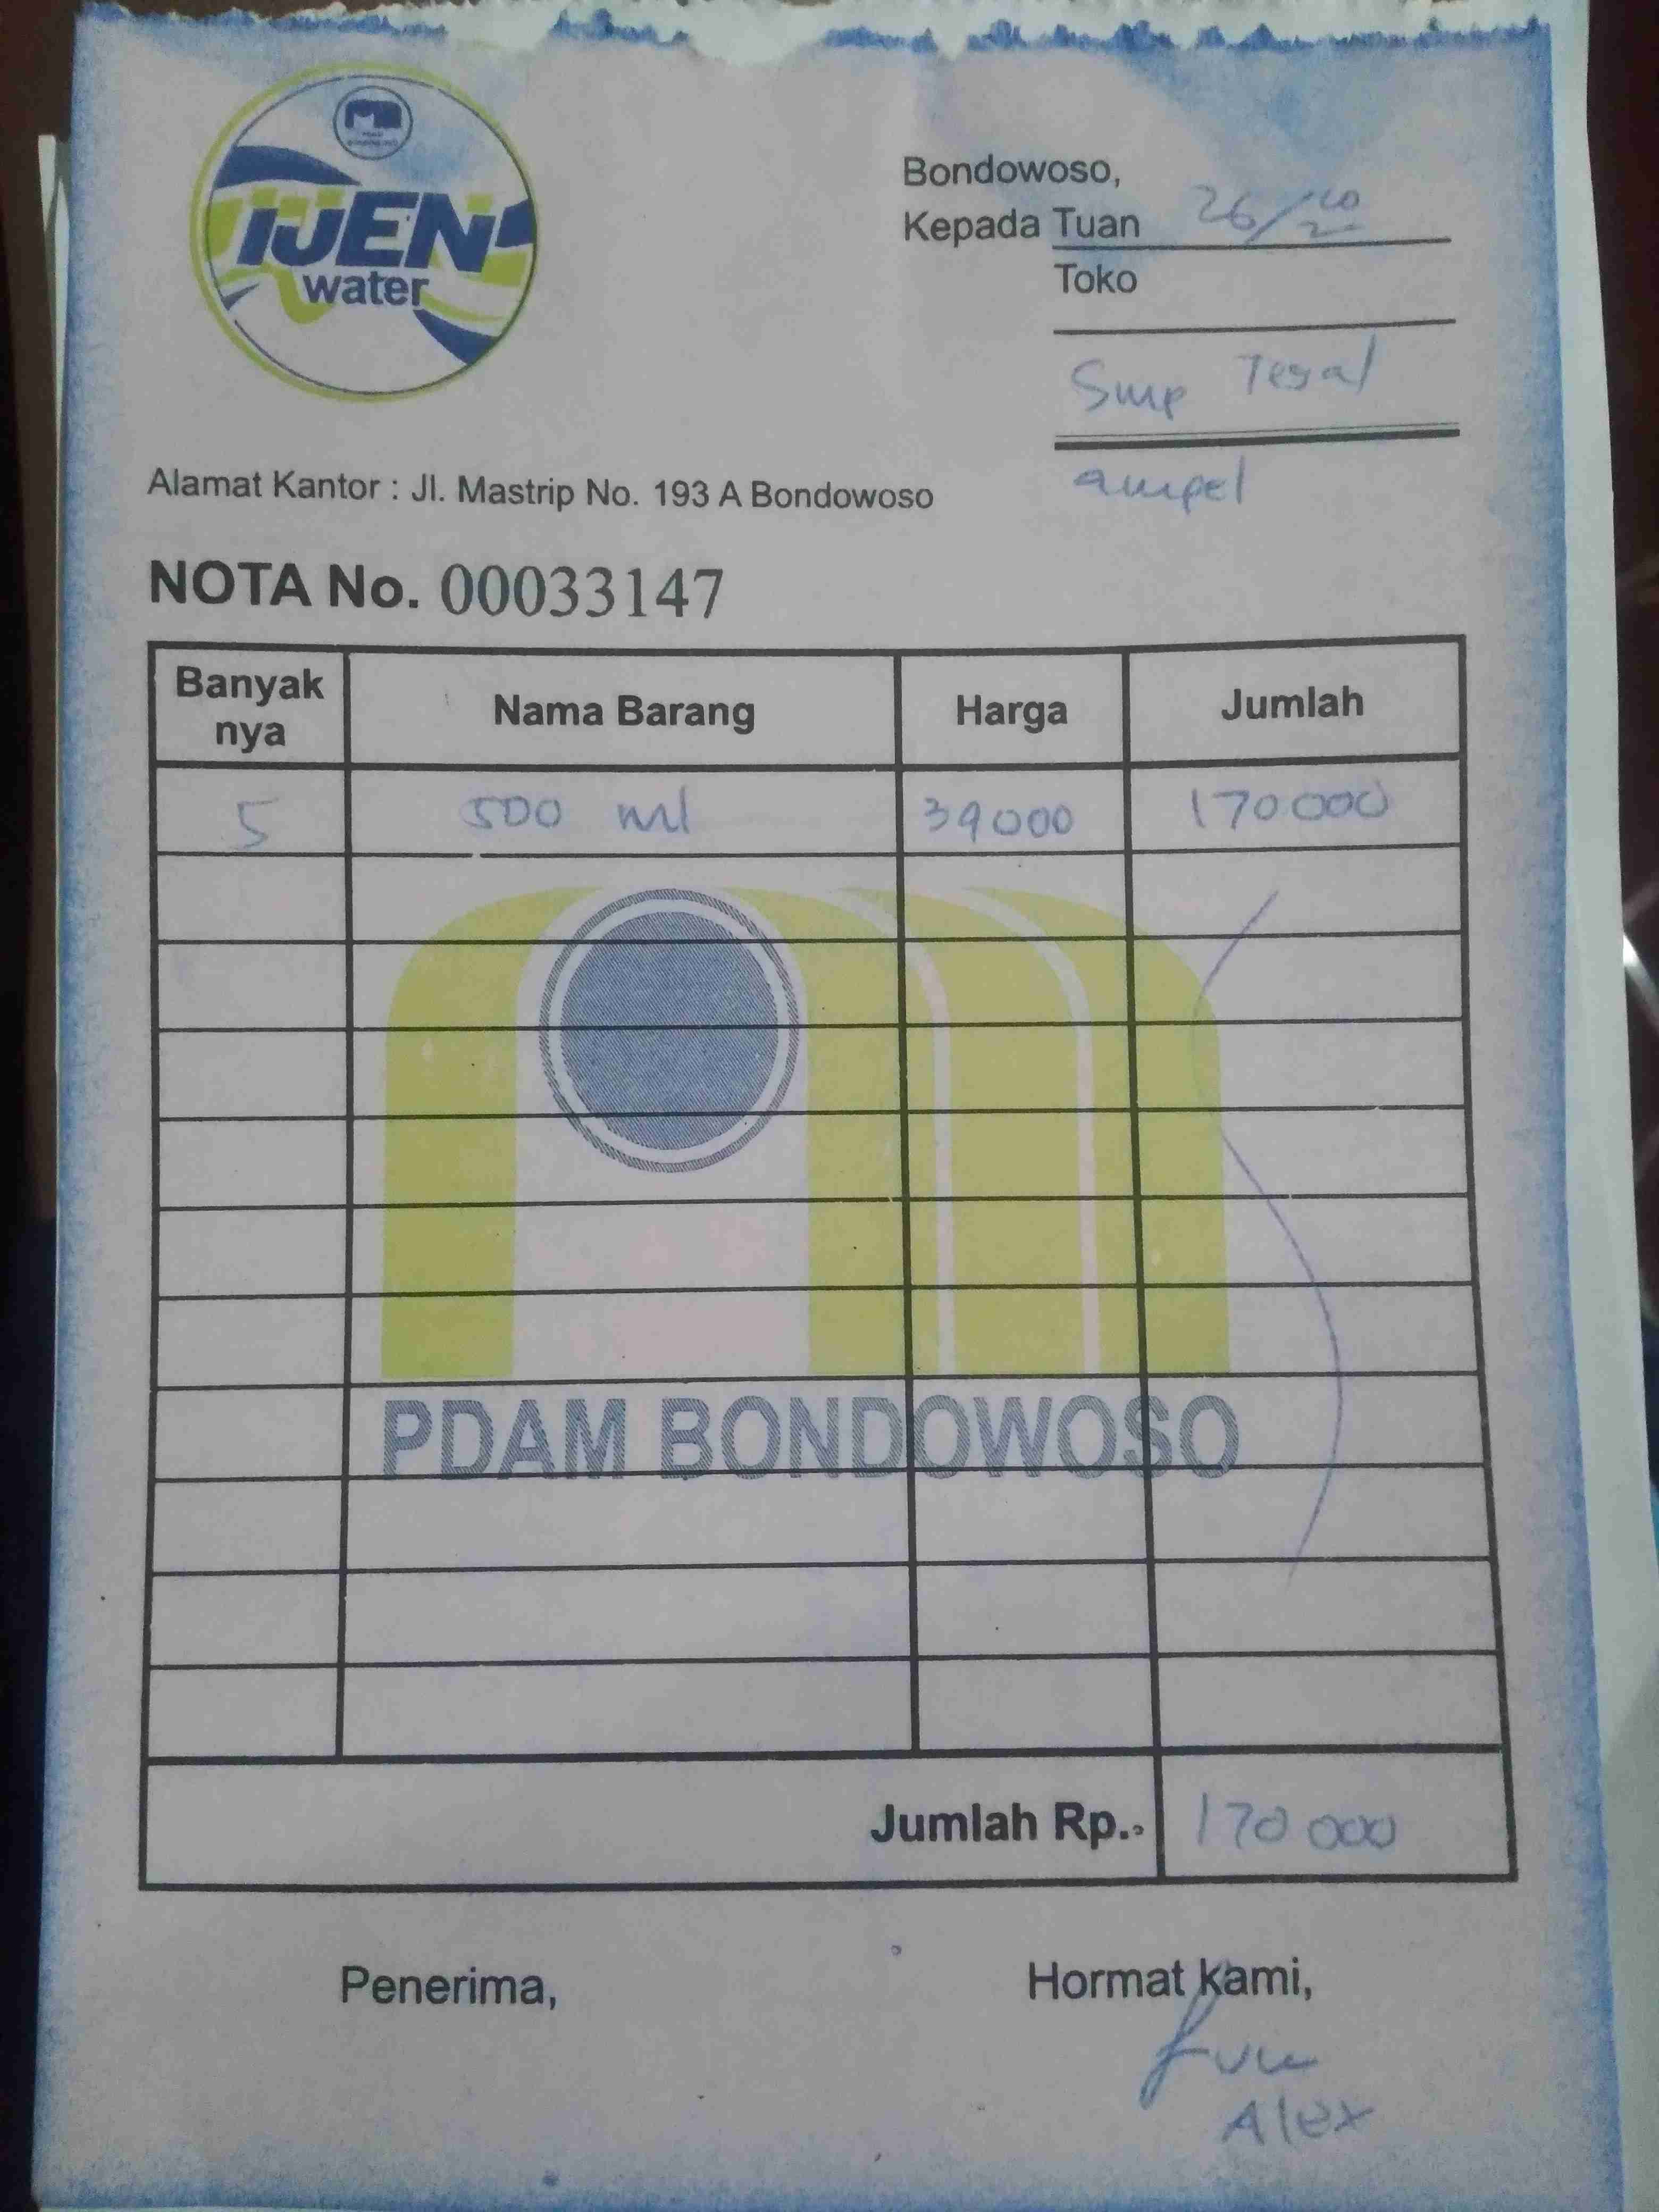 IJEN
water
Bondowoso,
Kepada Tuan 26/10
Toko
Smp Tegal
ampel
Alamat Kantor : Jl. Mastrip No. 193 A Bondowoso
NOTA No. 00033147
Banyak nya Nama Barang Harga Jumlah
5 500 ml 34000 170000
PDAM BONDOWOSO
Jumlah Rp.. 170 000
Penerima, Hormat kami,
Alex